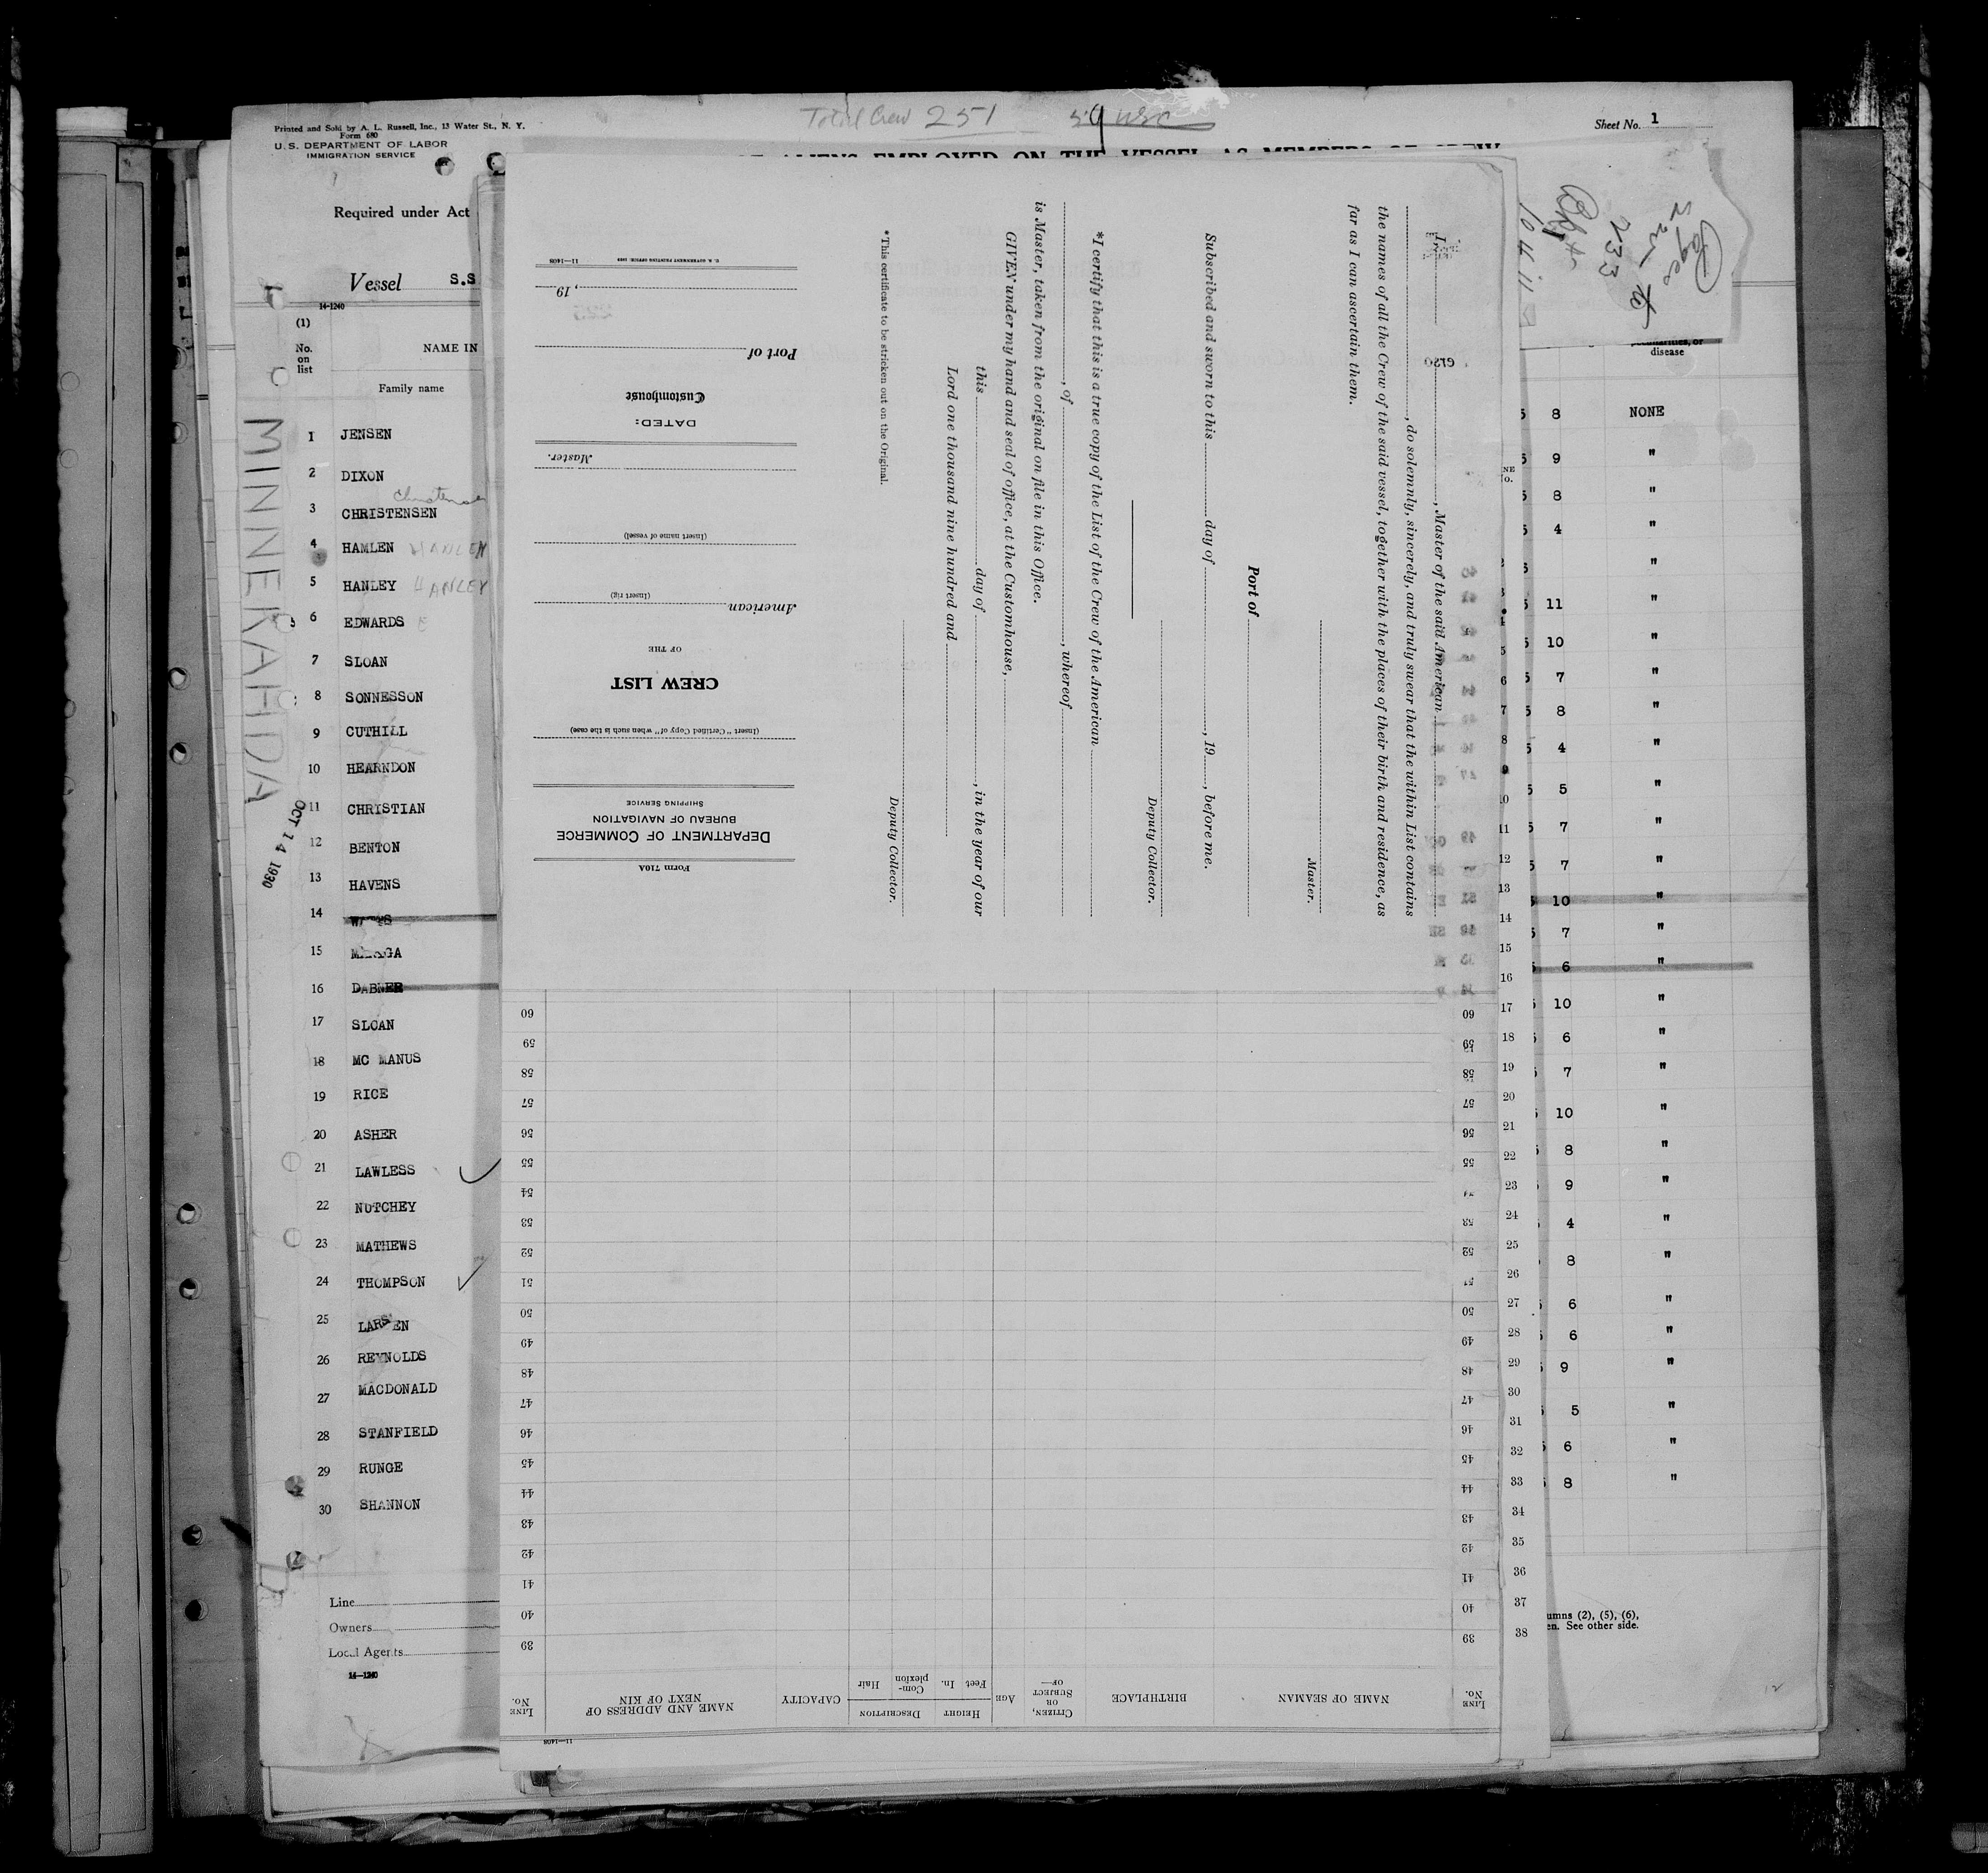 Total Crew 251
Sheet No. 1
Printed and Sold by A. L. Russell, Inc., 13 Water St., N. Y.
Form 680
U.S. DEPARTMENT OF LABOR
IMMIGRATION SERVICE
ALIENS EMPLOYED ON THE VESSEL AS MEMBERS OF CREW
Required under Act
Vessel S.S
14-1240
(1)
No. on list
NAME IN
Family name
MINNEKAHDA
OCT 14 1930
1 JENSEN
2 DIXON
Christensen
3 CHRISTENSEN
4 HAMLEN
5 HANLEY HANLEY
6 EDWARDS
7 SLOAN
8 SONNESSON
9 CUTHILL
10 HEARNDON
11 CHRISTIAN
12 BENTON
13 HAVENS
14
15
16 DABNER
17 SLOAN
18 MC MANUS
19 RICE
20 ASHER
21 LAWLESS
22 NUTCHEY
23 MATHEWS
24 THOMPSON
25 LARSEN
26 REYNOLDS
27 MACDONALD
28 STANFIELD
29 RUNGE
30 SHANNON
Line
Owners
Local Agents
14-1240
Form 710A
DEPARTMENT OF COMMERCE
BUREAU OF NAVIGATION
SHIPPING SERVICE
(Insert "Certified Copy of" when such is the case)
CREW LIST
OF THE
American
(Insert rig)
(Insert name of vessel)
Master.
DATED:
Customhouse
Port of
, 19
U. S. GOVERNMENT PRINTING OFFICE: 1929 11-1408
I, , Master of the said American
, do solemnly, sincerely, and truly swear that the within List contains
the names of all the Crew of the said vessel, together with the places of their birth and residence, as
far as I can ascertain them.
Master.
Port of
Subscribed and sworn to this day of , 19 , before me.
Deputy Collector.
*I certify that this is a true copy of the List of the Crew of the American
, of , whereof
is Master, taken from the original on file in this Office.
GIVEN under my hand and seal of office, at the Customhouse,
this day of , in the year of our
Lord one thousand nine hundred and
Deputy Collector.
*This certificate to be stricken out on the Original.
11-1408
LINE No.
NAME OF SEAMAN
BIRTHPLACE
CITIZEN, OR SUBJECT OF—
AGE
HEIGHT
Feet In.
DESCRIPTION
Complexion Hair
CAPACITY
NAME AND ADDRESS OF NEXT OF KIN
LINE No.
39 39
40 40
41 41
42 42
43 43
44 44
45 45
46 46
47 47
48 48
49 49
50 50
51 51
52 52
53 53
54 54
55 55
56 56
57 57
58 58
59 59
60 60
Pages
225 to
233
disease
8 NONE
9 "
8 "
4 "
"
11 "
10 "
7 "
8 "
4 "
5 "
7 "
7 "
10 "
7 "
6 "
10 "
6 "
7 "
10 "
8 "
9 "
4 "
8 "
6 "
6 "
9 "
5 "
6 "
8 "
5
6
7
8
9
10
11
12
13
14
15
16
17
18
19
20
21
22
23
24
25
26
27
28
29
30
31
32
33
34
35
36
37
38
umns (2), (5), (6),
en. See other side.
12